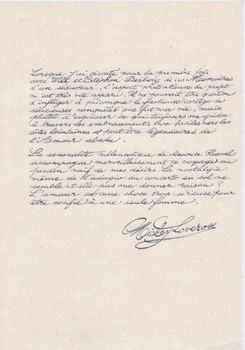 Lorsque j'ai discuté pour la première fois
avec et Stephen de ces Mémoires
d'un séducteur, l'aspect prétentieux du projet
m'est dès vite apparu. Il ne pouvait être question
d'infliger à quiconque le fastueux cortège de
délicieuses conquêtes que fut ma vie, mais
plutôt d'esquisser ce qui toujours me guida
à travers les embrasements charnels vers les
côtes lointaines et peut être légendaires de
l'Amour absolu.
La sensualité mélancolique de Maurice Ravel
accompagne merveilleusement ce voyage au
jardin naïf de mes désirs. La nostalgie
même de l'adagio du concerto en sol me
semble-t-elle pas me donner raison ?
L'amour est une chose trop sérieuse pour
être confiée à une seule femme.